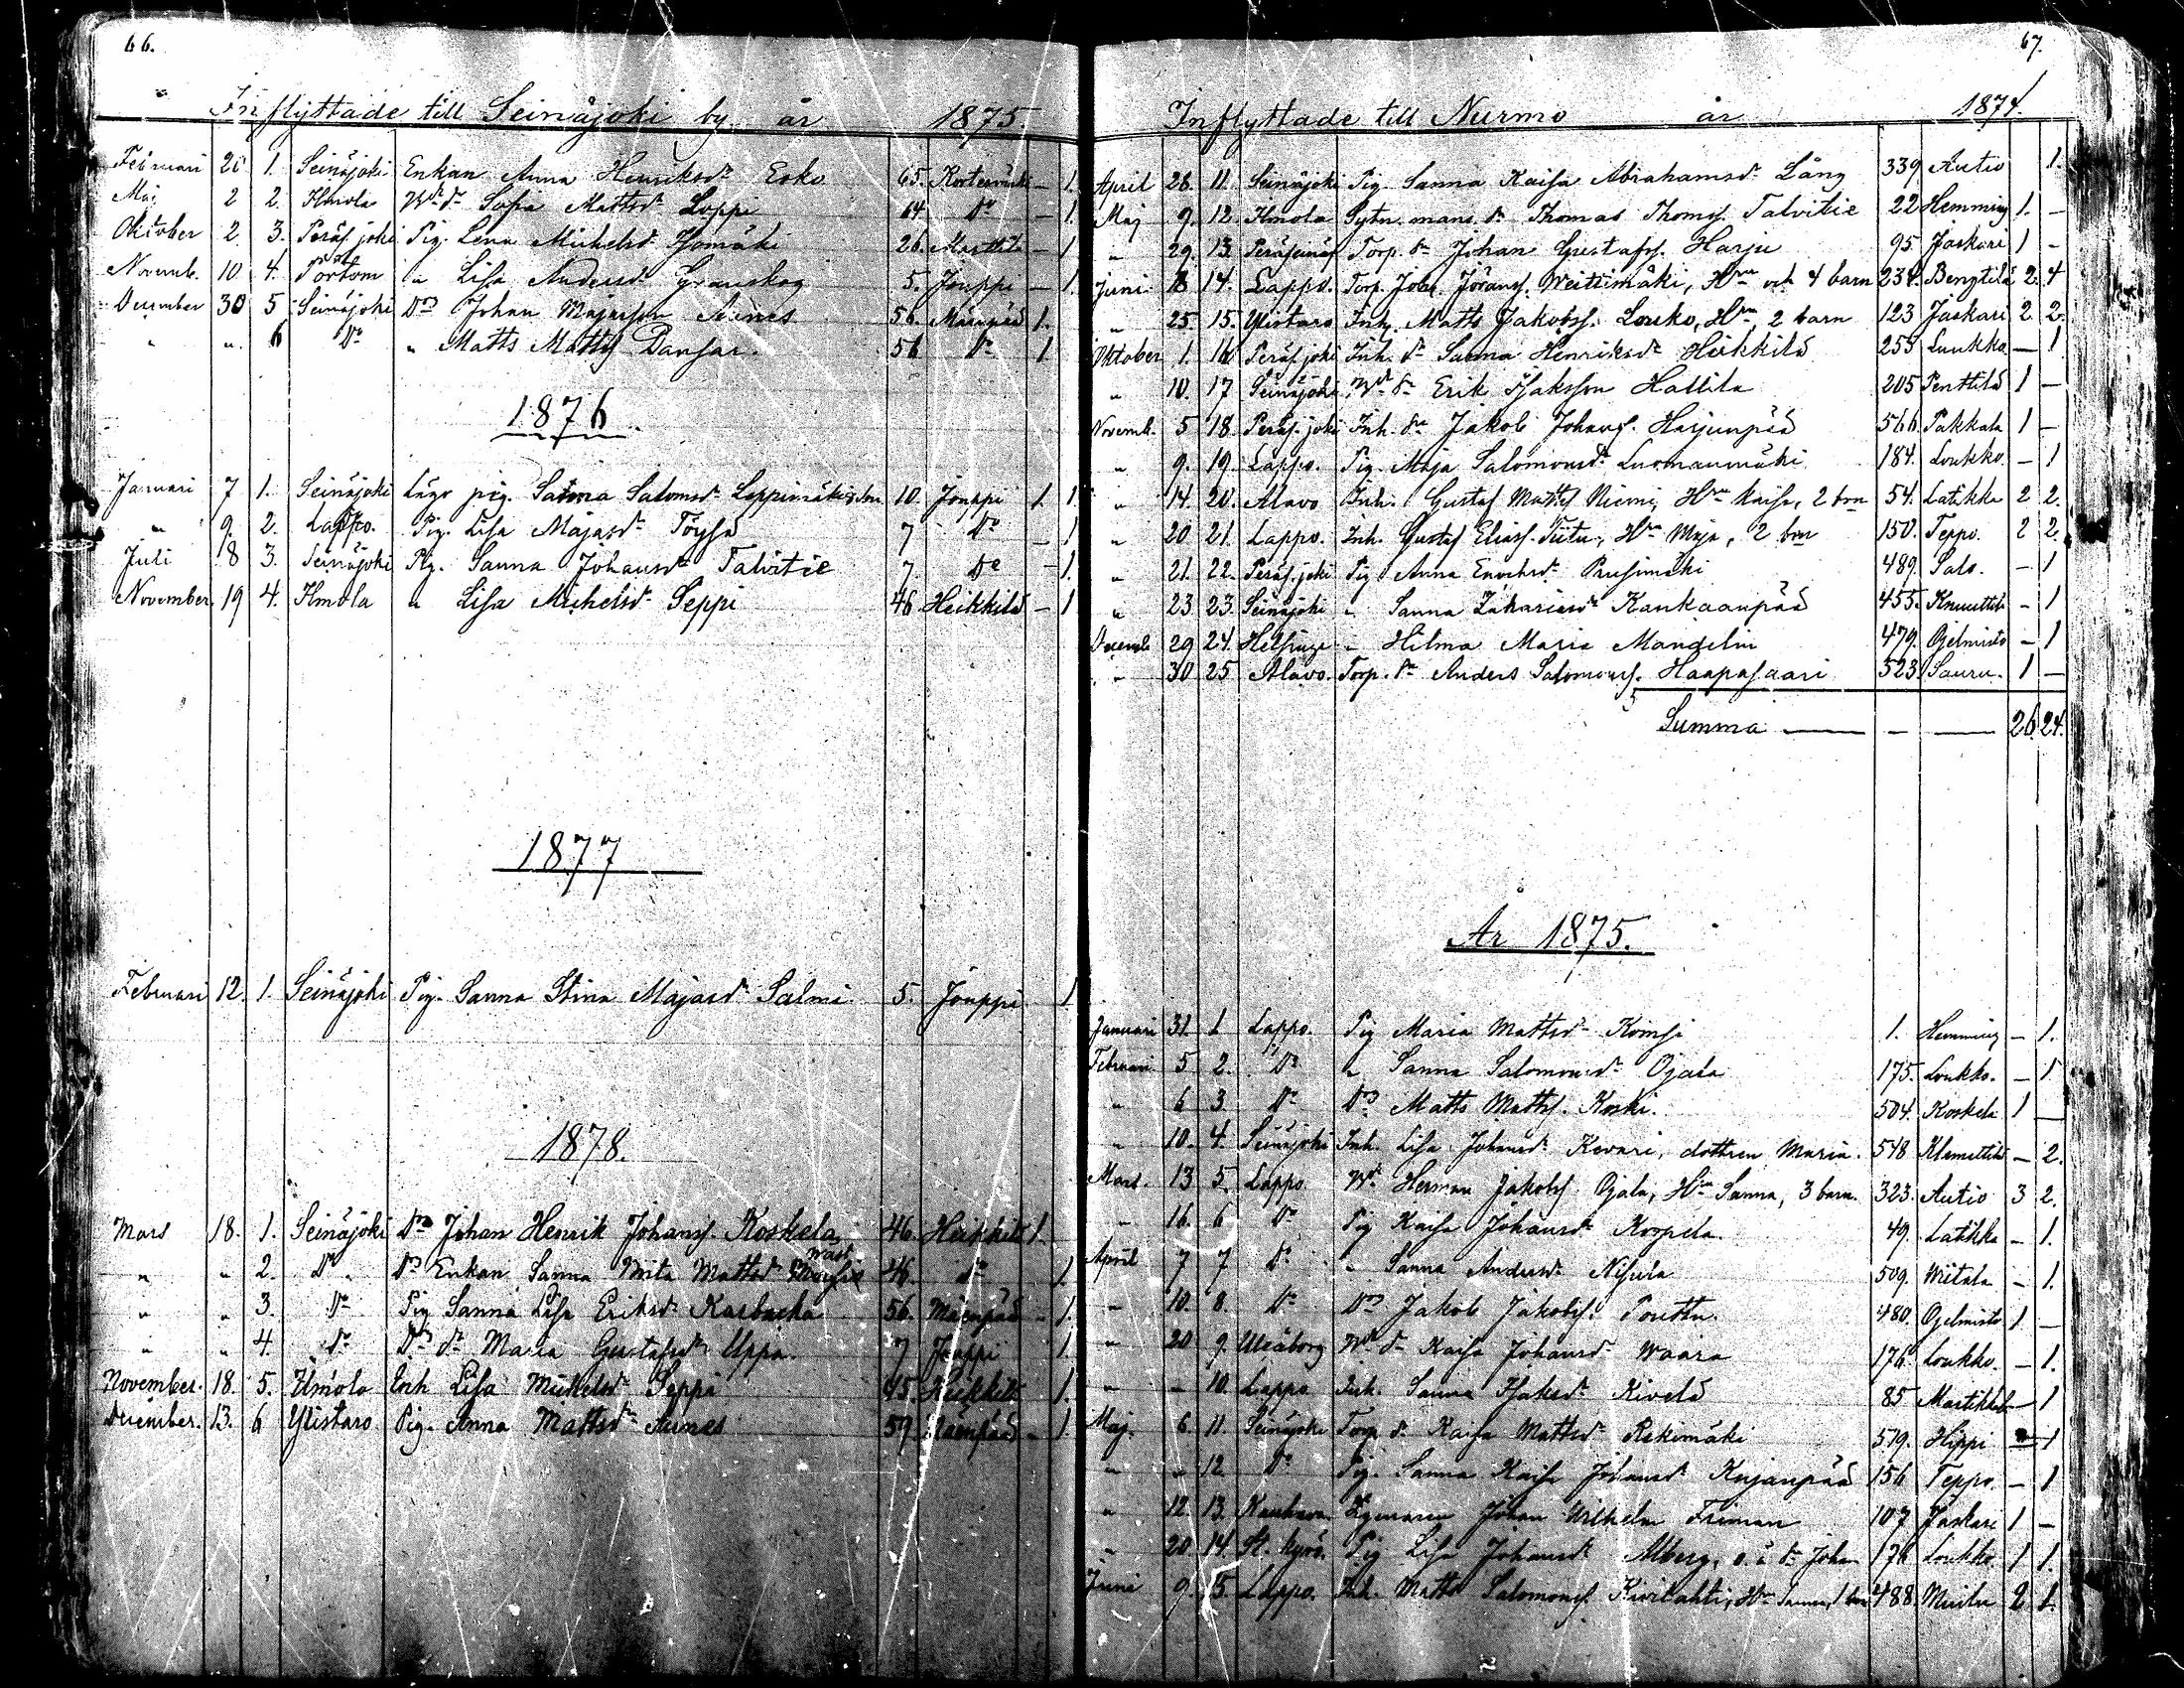 66.
Inflyttade till Seinäjoki by år 1875
Februari 26 1. Seinäjoki Enkan Anna Henriksdr Esko 65. Kortesmäki — 1.
Maj 2 2. Ilmola Wdr Sofia Mattsdr Loppi 64 Do — 1.
Oktober 2 3. Peräs.joki Pig. Lena Michelsdr 26. Marttila — 1
Novemb. 10 4. Pörtom " Lisa Andersdr Granskog 5. Jouppi — 1.
December 30 5 Seinäjoki Dr Johan Majasson Aunes 56. Mäenpää 1.
" " 6 Do " Matts Mattss Pansar. 56 Do 1
1876
Januari 7 1. Seinäjoki pig. Sanna Salomsdr 10. Jouppi 1. 1
" 9. 2. Lappo. Pig. Lisa Majasdr Töysä 7 Do — 1
Juli 8 3. Seinäjoki Pig. Sanna Johansdr Talvitie 7. Do — 1.
November 19 4. Ilmola " Lisa Michelsdr Seppi 46. Heikkilä — 1
1877
Februari 12. 1. Seinäjoki Pig. Sanna Stina Majasdr Salmi 5. Jouppi 1
1878.
Mars 18. 1. Seinäjoki Dr Johan Henrik Johanss. Koskela 46. Heikkilä 1.
" " 2. Do Enkan Sanna Brita Mattsdr 46. Do 1
" " 3. Do Pig Sanna Lisa Eriksdr Karbacka 56. Mäenpää - 1.
" " 4. Do Maria Gustafsdr Uppa. 7 Jouppi 1.
November. 18. 5. Ilmola Lisa Michelsdr Seppi 45. Heikkilä 1.
December. 13. 6 Ylistaro Pig. Anna Mattsdr Aunes 59. Mäenpää - 1.
67.
Inflyttade till Nurmo år 1874.
April 26. 11. Seinäjoki Pig. Sanna Kaisa Abrahamsdr Lång 339 Autio 1.
Maj 9. 12. Ilmola Thomas Thomss. Talvitie 22 Hemming 1. —
" 29. 13. Torp. Johan Gustafss. Harju 95. Jaskari 1 -
Juni 18 14. Lappo. Torp. Joh. Jöranss. Weitimäki, Hru och 4 barn 234. Bengtilä 2. 4
" 25. 15. Ylistaro Inh. Matts Jakobss. Louko, Hru, 2 barn 123 Jaskari 2 2.
Oktober 1. 16 Peräs.joki Inh. Sanna Henriksdr Heikkilä 255 Luukka — 1
" 10. 17 Seinäjoki Erik Isaksson Hallila 205 Penttilä 1 —
Novemb. 5 18. Peräs.joki Inh. Jakob Johanss. Harjunpää 566 Pakkala 1 —
" 9. 19. Lappo. Pig. Maja Salomonsdr Luomanmäki 184. Loukko. — 1
" 14. 20. Alavo Inh. Gustaf Mattss Niemi, Hru Kaisa, 2 brn 54. Latikka 2 2.
" 20 21. Lappo. Inh. Gustaf Eliass. Tiitu, Hru Maja, 2 brn 150. Teppo. 2 2.
" 21. 22. Peräs.joki Pig Anna Enochsdr 489. Salo. — 1
" 23 23. Seinäjoki " Sanna Zakariasdr Kankaanpää 455. Knuuttila - 1
Decemb 29 24. Helsinge " Hilma Maria Mandelin 479. Ojelmisto — 1
" 30 25 Alavo. Torp. Anders Salomonss. Haapasaari 523 Sauru. 1 —
Summa — — — 26 24.
År 1875.
Januari 31. 1 Lappo. Pig Maria Mattsdr Komsi 1. Hemming — 1.
Februari 5 2. Do " Sanna Salomonsdr Ojala 175. Loukko. — 1
" 6 3 Do Dr Matts Mattss. Koski. 504. Koskela 1 —
" 10. 4. Seinäjoki Inh. Lisa Johansdr Kevari, dottren Maria. 548 Klemettilä — 2.
Mars. 13 5. Lappo. Herman Jakobss. Ojala, Hru Sanna, 3 barn. 323. Autio 3 2.
" 16. 6 Do Pig Kaisa Johansdr Korpela. 49. Latikka - 1.
April 7 7 Do " Sanna Andersdr Nisula 509. Wiitala - 1.
" 10. 8. Do Dr Jakob Jakobss. Pouttu. 480. Ojelmisto 1 —
" 20 9. Uleåborg Kaisa Johansdr Waara 176. Loukko. — 1.
" — 10. Lappo. Inh. Sanna Isaksdr Kivelä 85 — 1
Maj. 6. 11. Seinäjoki Torp. Kaisa Mattsdr Rekimäki 579. Hippi — 1
" " 12 Do Pig. Sanna Kaisa Johansdr Kujanpää 156 Teppo. — 1
" 12. 13. Kauhava. Johan Wilhelm Friman 107 Jaskari 1 —
" 20. 14. St. Kyrö. Pig Lisa Johansdr Alberg, Johan 176 Loukko. 1 1.
Juni 9. 15. Lappo. Inh. Matts Salomonss. Kivilahti, Hru Sanna, 1 brn 488. 2 1.